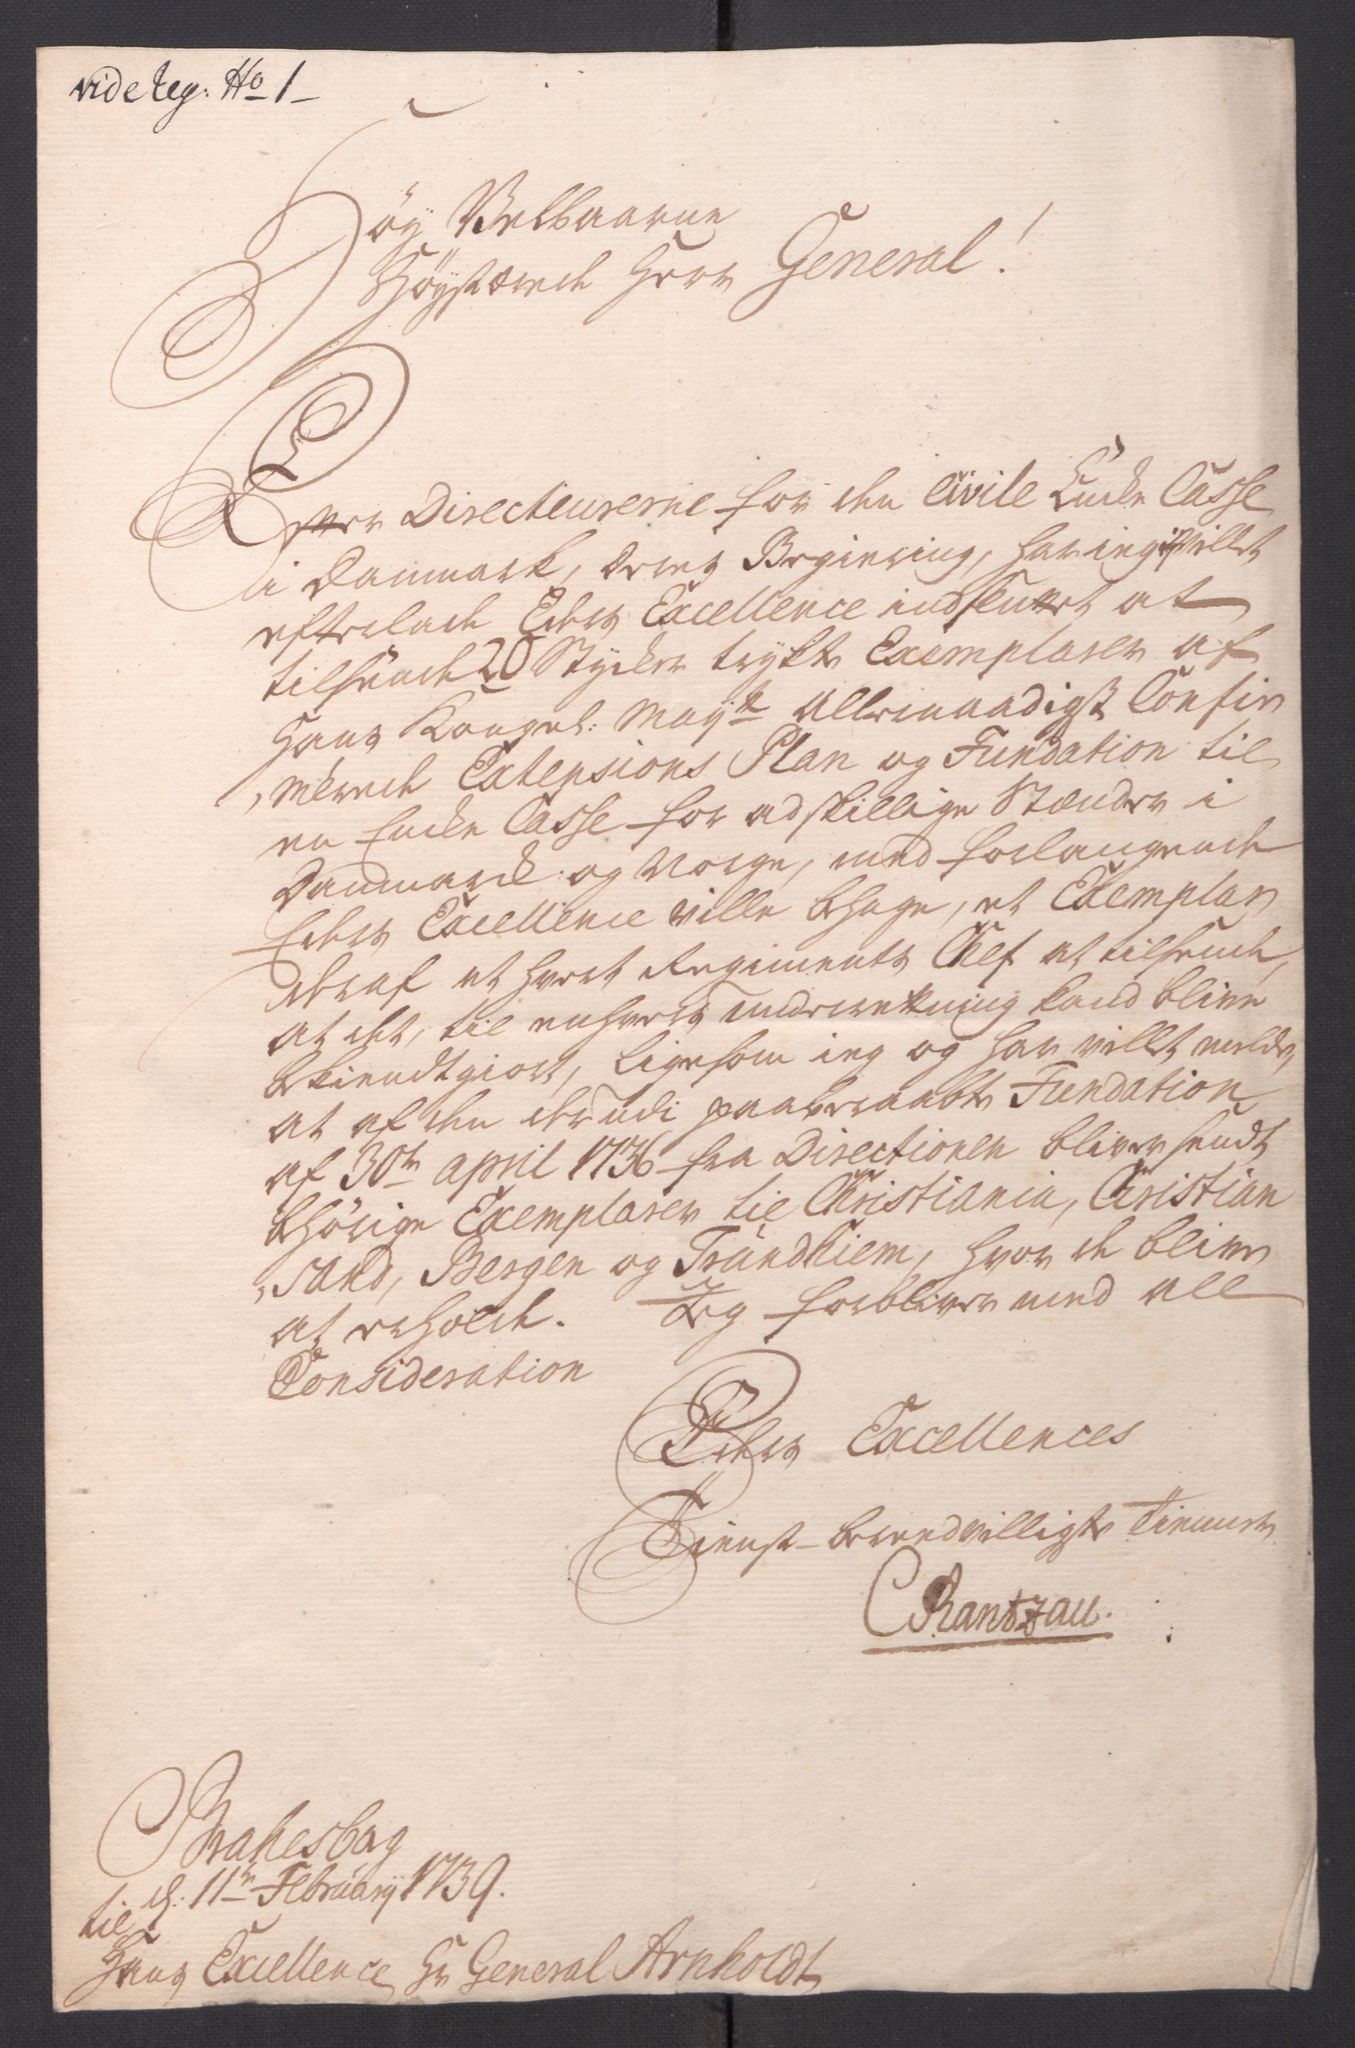 vide reg: No 1
Høy Velbaarne
Høystærede Herr General!
Efter Directeurerne for den Civile Encke Casse
i Danmark, deres Begiering, har ieg ej villet
efterlade Eders Excellence indsluttet at
tilsende 20 Stycker trykte Exemplarer af
Hans Kongel: Mayts allernaadigst Confir
merede Extensions Plan og Fundation til
en Encke Casse for adskillige Stænder i
Danmarck og Norge, med forlangende
Eders Excellence ville behage, et Exemplar
deraf et hvert Regiments Chef at tilsende,
at det, til enhvers underretning kand blive
bekiendtgiort, ligesom ieg og har villet melde,
at af den derudi paaberaabte Fundation
af 30te april 1736 fra Directionen bliver sendt
behørige Exemplarer til Christiania, Christian
sand, Bergen og Trundhiem, hvor de bliver
at erholde. Jeg forbliver med all
Consideration
Eders Excellences
Tienst-beredvilligste Tienner
CRantzau.
Brahesborg
d: 11te February 1739.
til
Hans Excellence Hr General Arnholdt